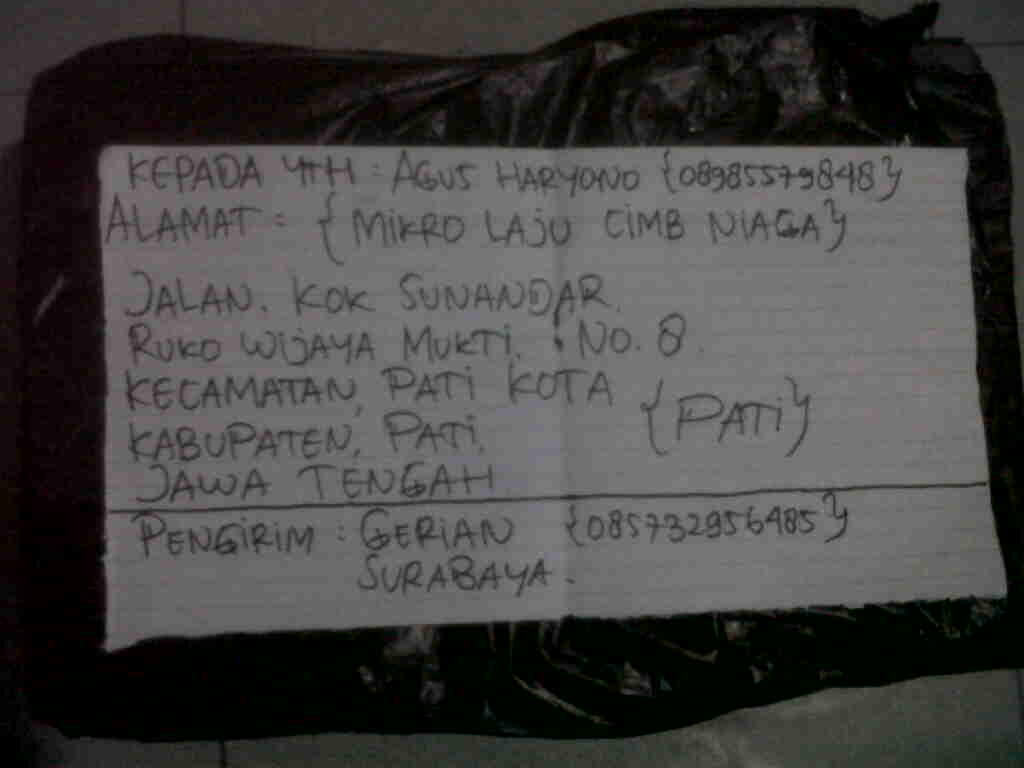 KEPADA YTH : AGUS HARYONO {08985579848}
ALAMAT : {MIKRO LAJU CIMB NIAGA}
JALAN. KOK SUNANDAR.
RUKO WIJAYA MUKTI. : NO. 8.
KECAMATAN, PATI KOTA
KABUPATEN, PATI. {PATI}
JAWA TENGAH
PENGIRIM : GERIAN {085732956485}
SURABAYA.